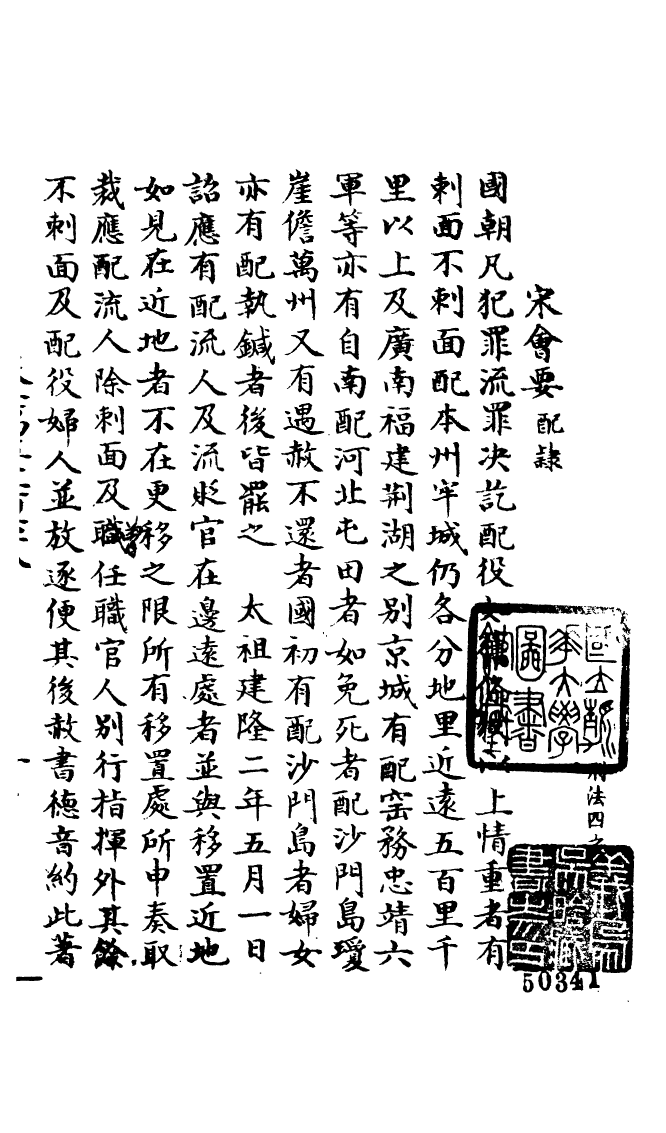 刑法四之
宋會要 配隸
國朝凡犯罪流罪決訖配役 上情重者有
刺面不刺面配本州牢城仍各分地里近遠五百里千
里以上及廣南福建荆湖之別京城有配窑務忠靖六
軍等亦有自南配河北屯田者如免死者配沙門島瓊
崖儋萬州又有遇赦不還者國初有配沙門島者婦女
亦有配執鍼者後皆罷之 太祖建隆二年五月一日
詔應有配流人及流貶官在邊遠處者並與移置近地
如見在近地者不在更移之限所有移置處所申奏取
裁應配流人除刺面及曾任職官人別行指揮外其餘
不刺面及配役婦人並放逐便其後赦書德音約此著
一
國立北平大學圖書
50341